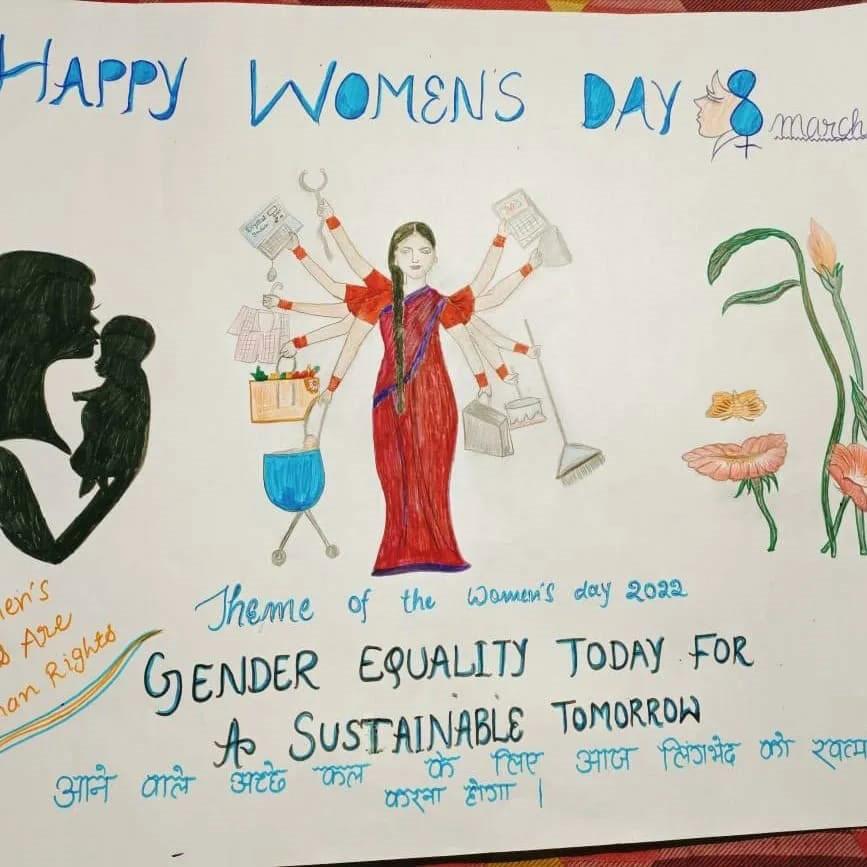 HAPPY WOMEN'S DAY 8 march
Theme of the Women's day 2022
GENDER EQUALITY TODAY FOR
A SUSTAINABLE TOMORROW
आने वाले अच्छे कल के लिए आज लिंगभेद को खत्म
करना होगा।
Are
Rights